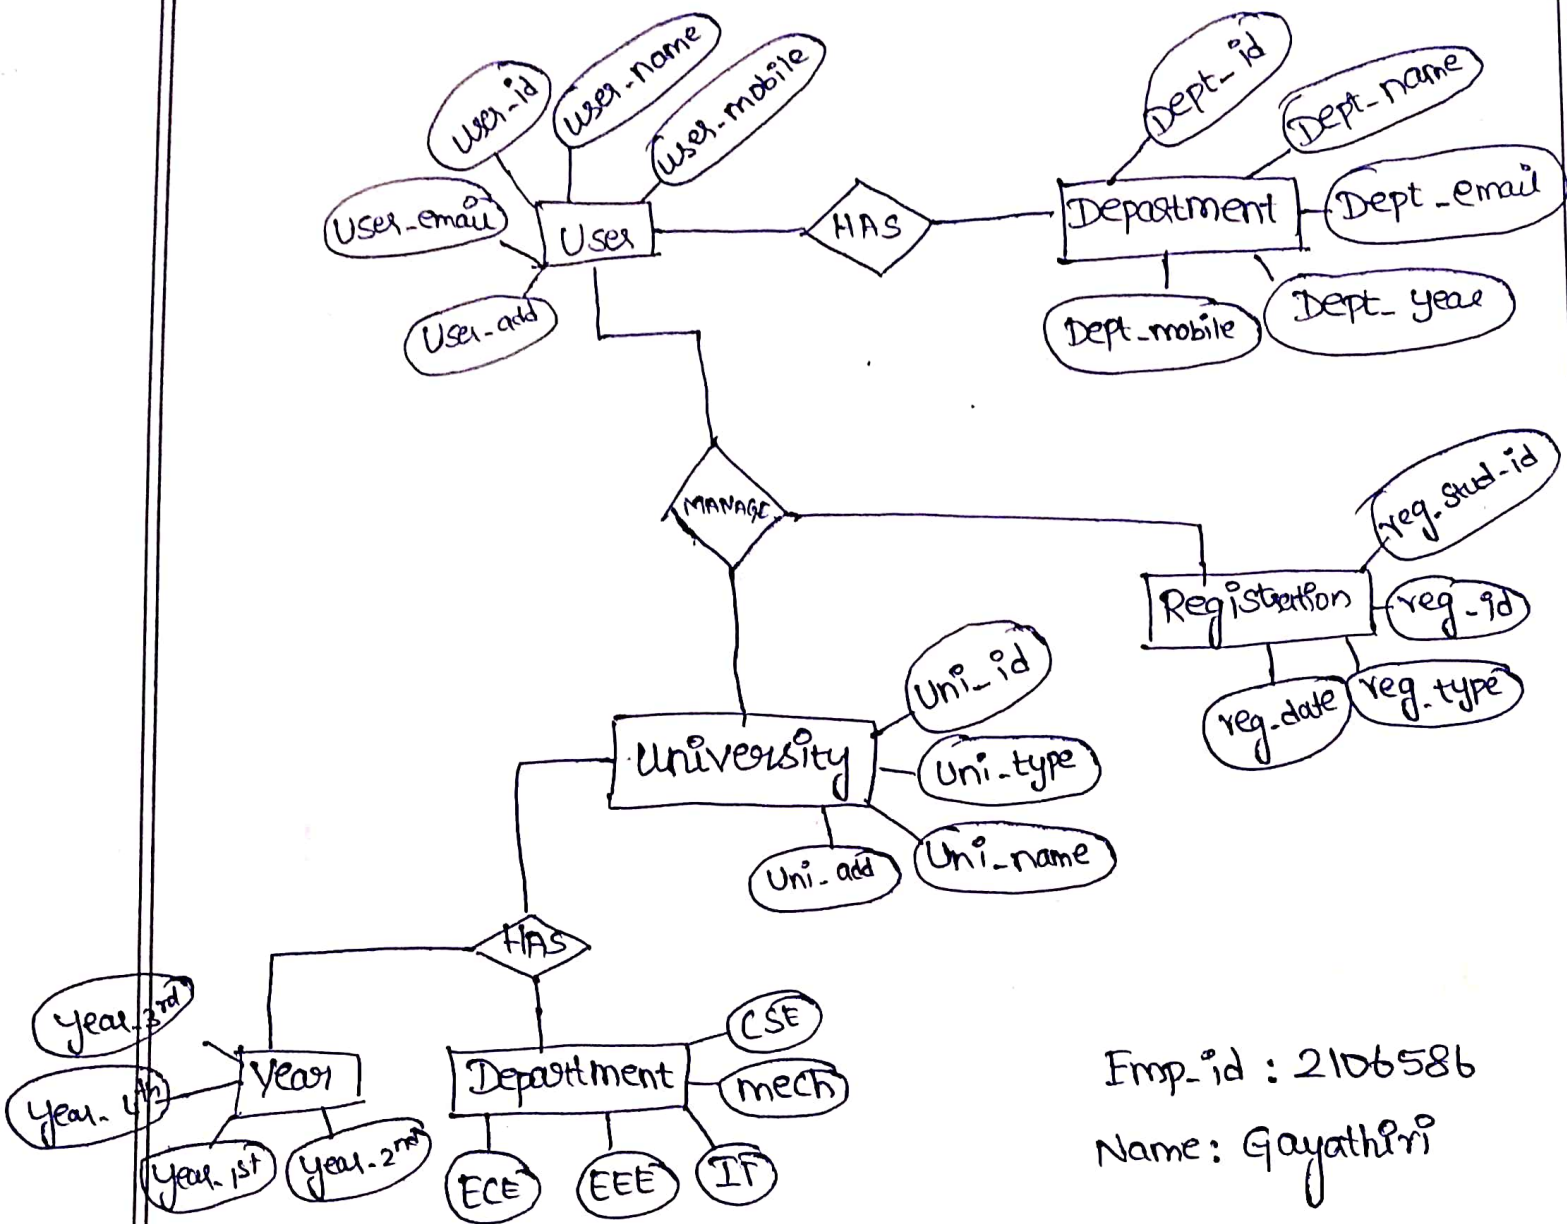 user_id
user_name
user_mobile
User_email
User_add
User
HAS
Dept_id
Dept_name
Department
Dept_email
Dept_mobile
Dept_year
MANAGE
reg_stud_id
Registration
reg_id
reg_date
reg_type
Uni_id
University
Uni_type
Uni_add
Uni_name
HAS
year_3rd
year_4th
year
year_1st
year_2nd
Department
CSE
mech
ECE
EEE
IT
Emp_id : 2106586
Name: Gayathiri